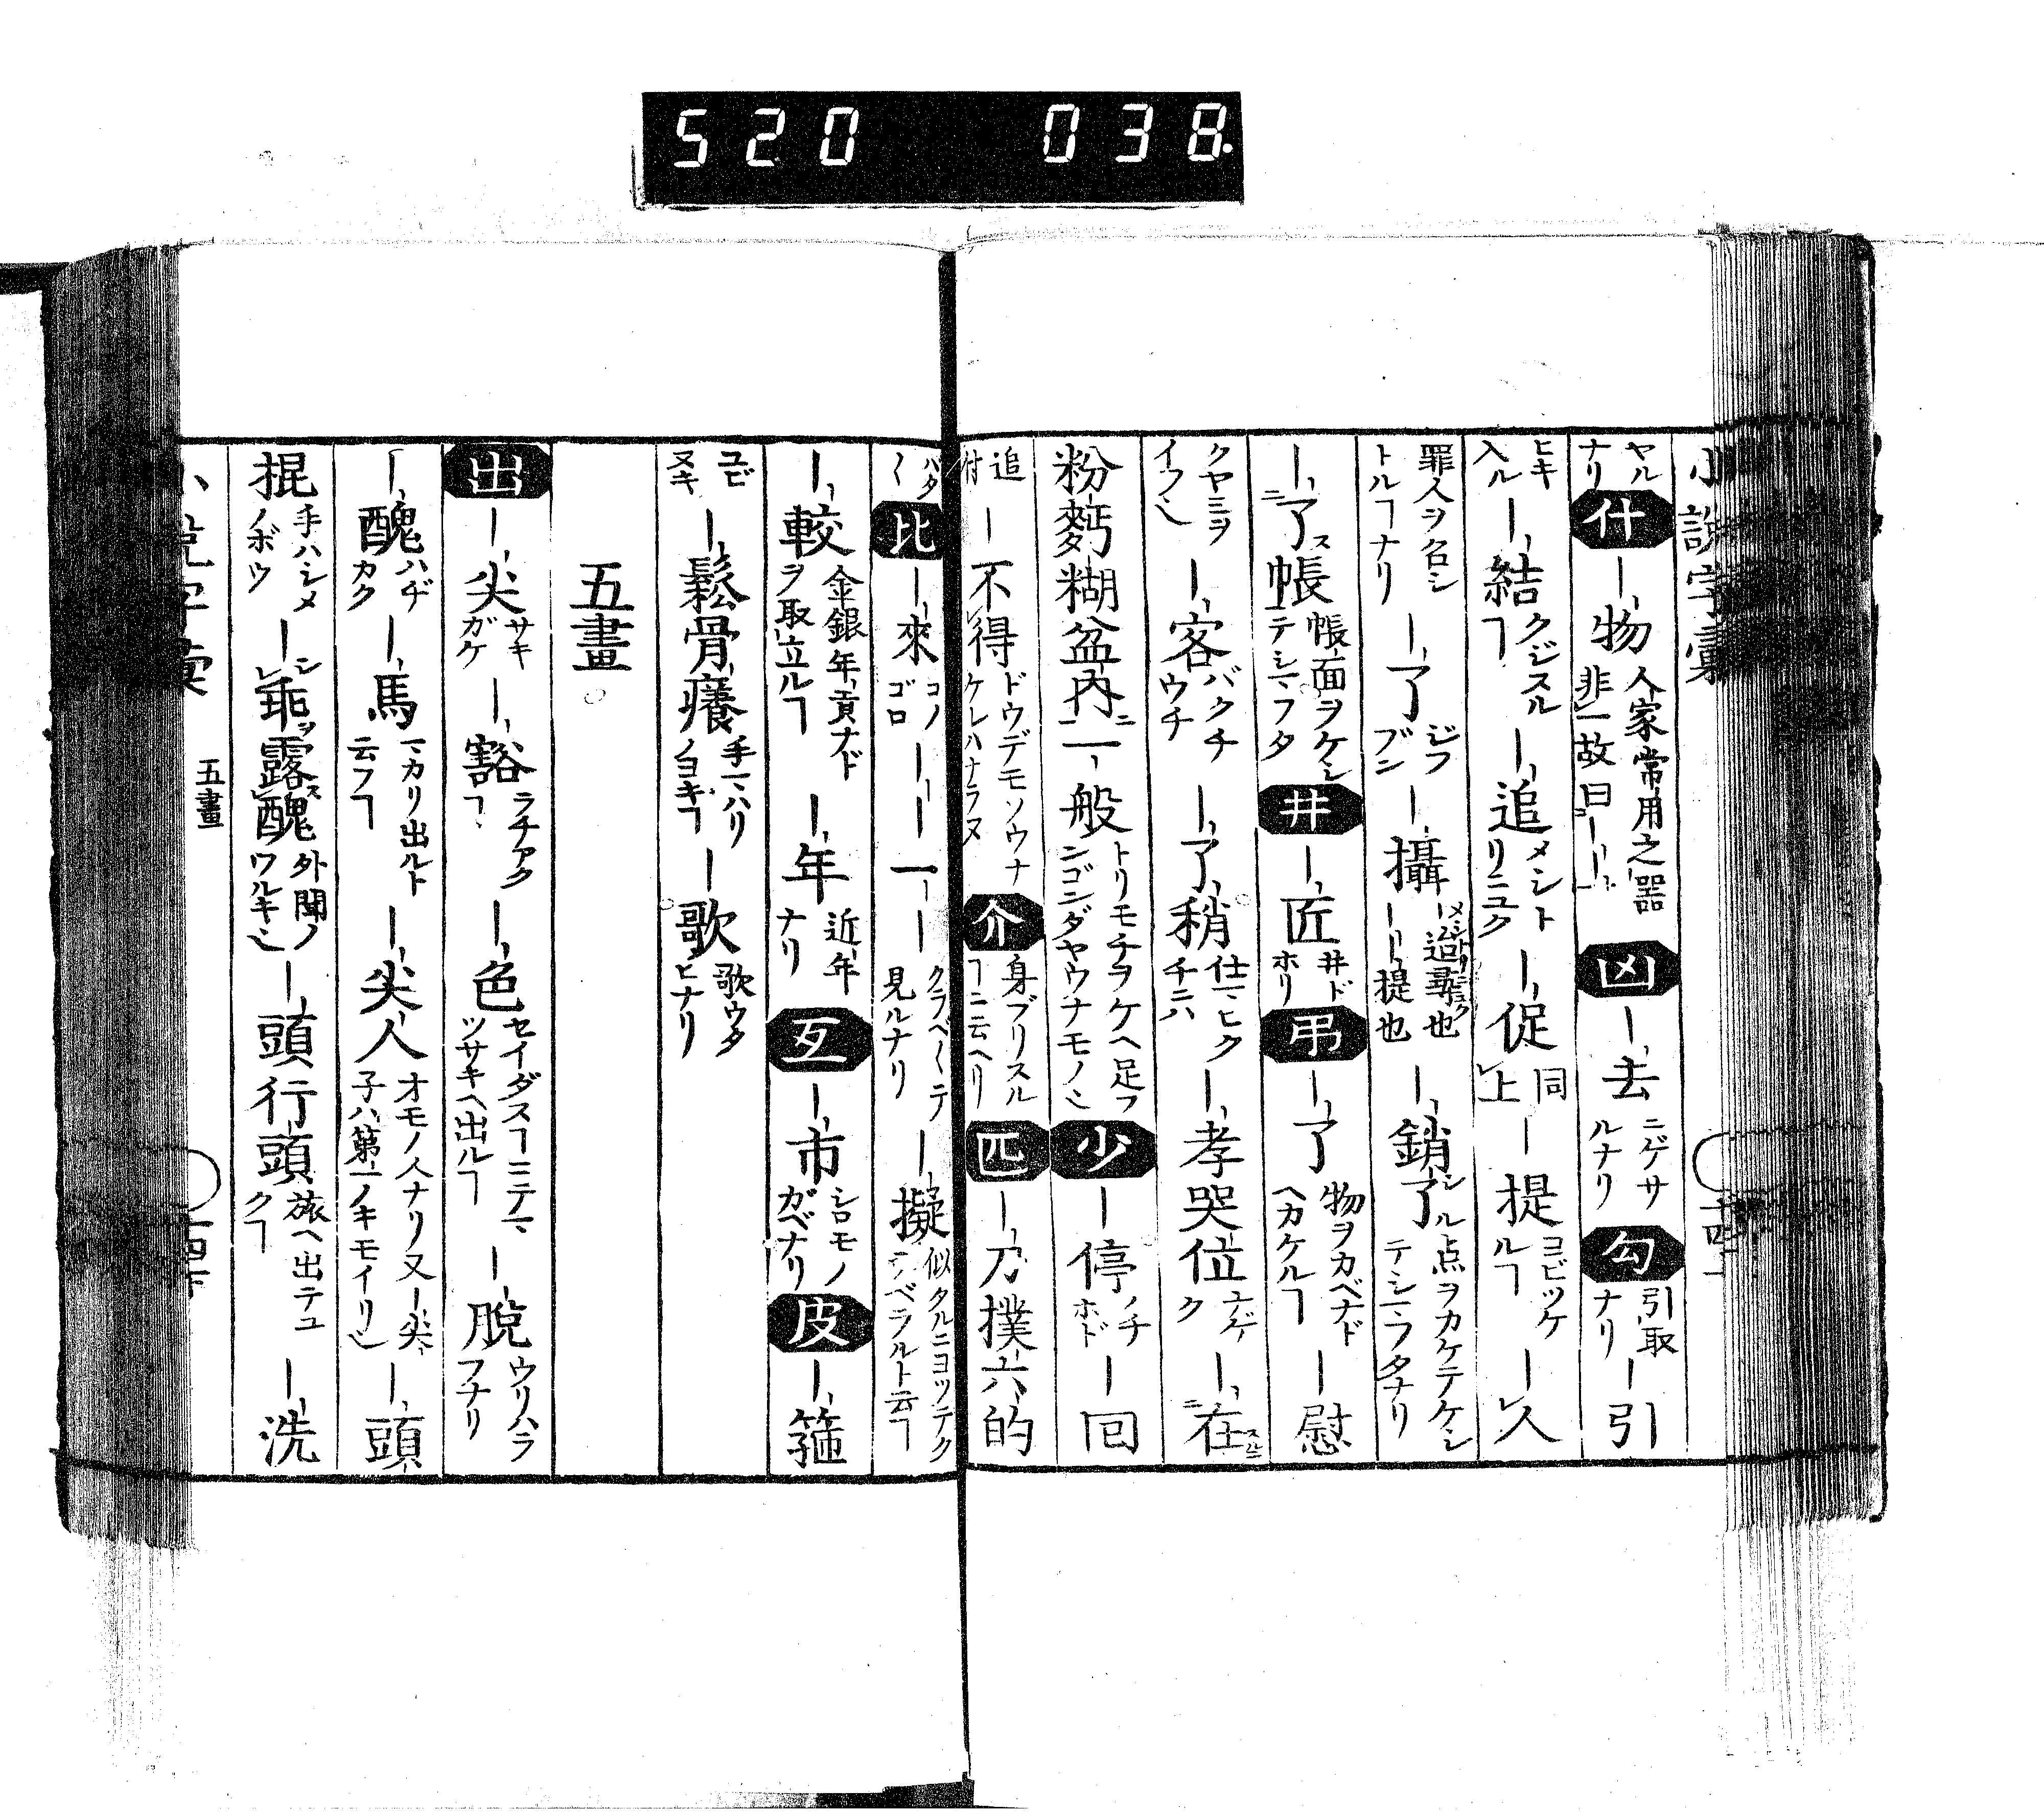 520 038.
小説字彙
ヤルナリ 什 ｜物 人家常用之器非一故曰｜｜ 凶 ｜去 ニゲサルナリ 勾 引取ナリ ｜引
ヒキ入ル ｜結 クジスルヿ ｜追 メシトリニユク ｜促 同上 ｜提 ヨビツケルヿ ｜人
罪人ヲ召シトルヿナリ ｜了 ジフブン ｜攝 ｜追尋也｜提也 ｜銷了 点ヲカケテケシテシマフタナリ
｜了帳 帳面ヲケシテシマフタ 井 ｜匠 井ドホリ 弔 ｜了 物ヲカベナドヘカケルヿ ｜慰
クヤミヲイフ也 ｜客 バクチウチ ｜了稍 仕マヒクチニハ ｜孝哭位 ナゲク ｜在
粉麪糊盆内一般 トリモチヲケヘ足フンゴンダヤウナモノ也 少 ｜停 ノチホド ｜回
追付 ｜不得 ドウデモソウナケレハナラヌ 介 身ブリスルヿニ云ヘリ 匹 ｜刀撲六的
ハタ〱 比 ｜來 コノゴロ ｜｜｜一｜ クラベ〱テ見ルナリ ｜擬 似タルニヨツテクラベラルト云ヿ
｜較 金銀年貢ナドヲ取立ルヿ ｜年 近年ナリ 互 ｜市 シロモノガベナリ 皮 ｜箍
ユビヌキ ｜鬆骨癢 手マハリノヨキヿ ｜歌 歌ウタヒナリ
五畫
出 ｜尖 サキガケ ｜豁 ラチアクヿ ｜色 セイダスヿニテマツサキヘ出ルヿ ｜脱 ウリハラフナリ
｜醜 ハヂカク ｜馬 マカリ出ルト云フヿ ｜尖人 オモノ人ナリ又｜尖子ハ第一ノキモイリ也 ｜頭
掍 手ハシメノボウ ｜乖露醜 外聞ノワルキ也 ｜頭行頭 旅ヘ出テユクヿ ｜洗
五畫